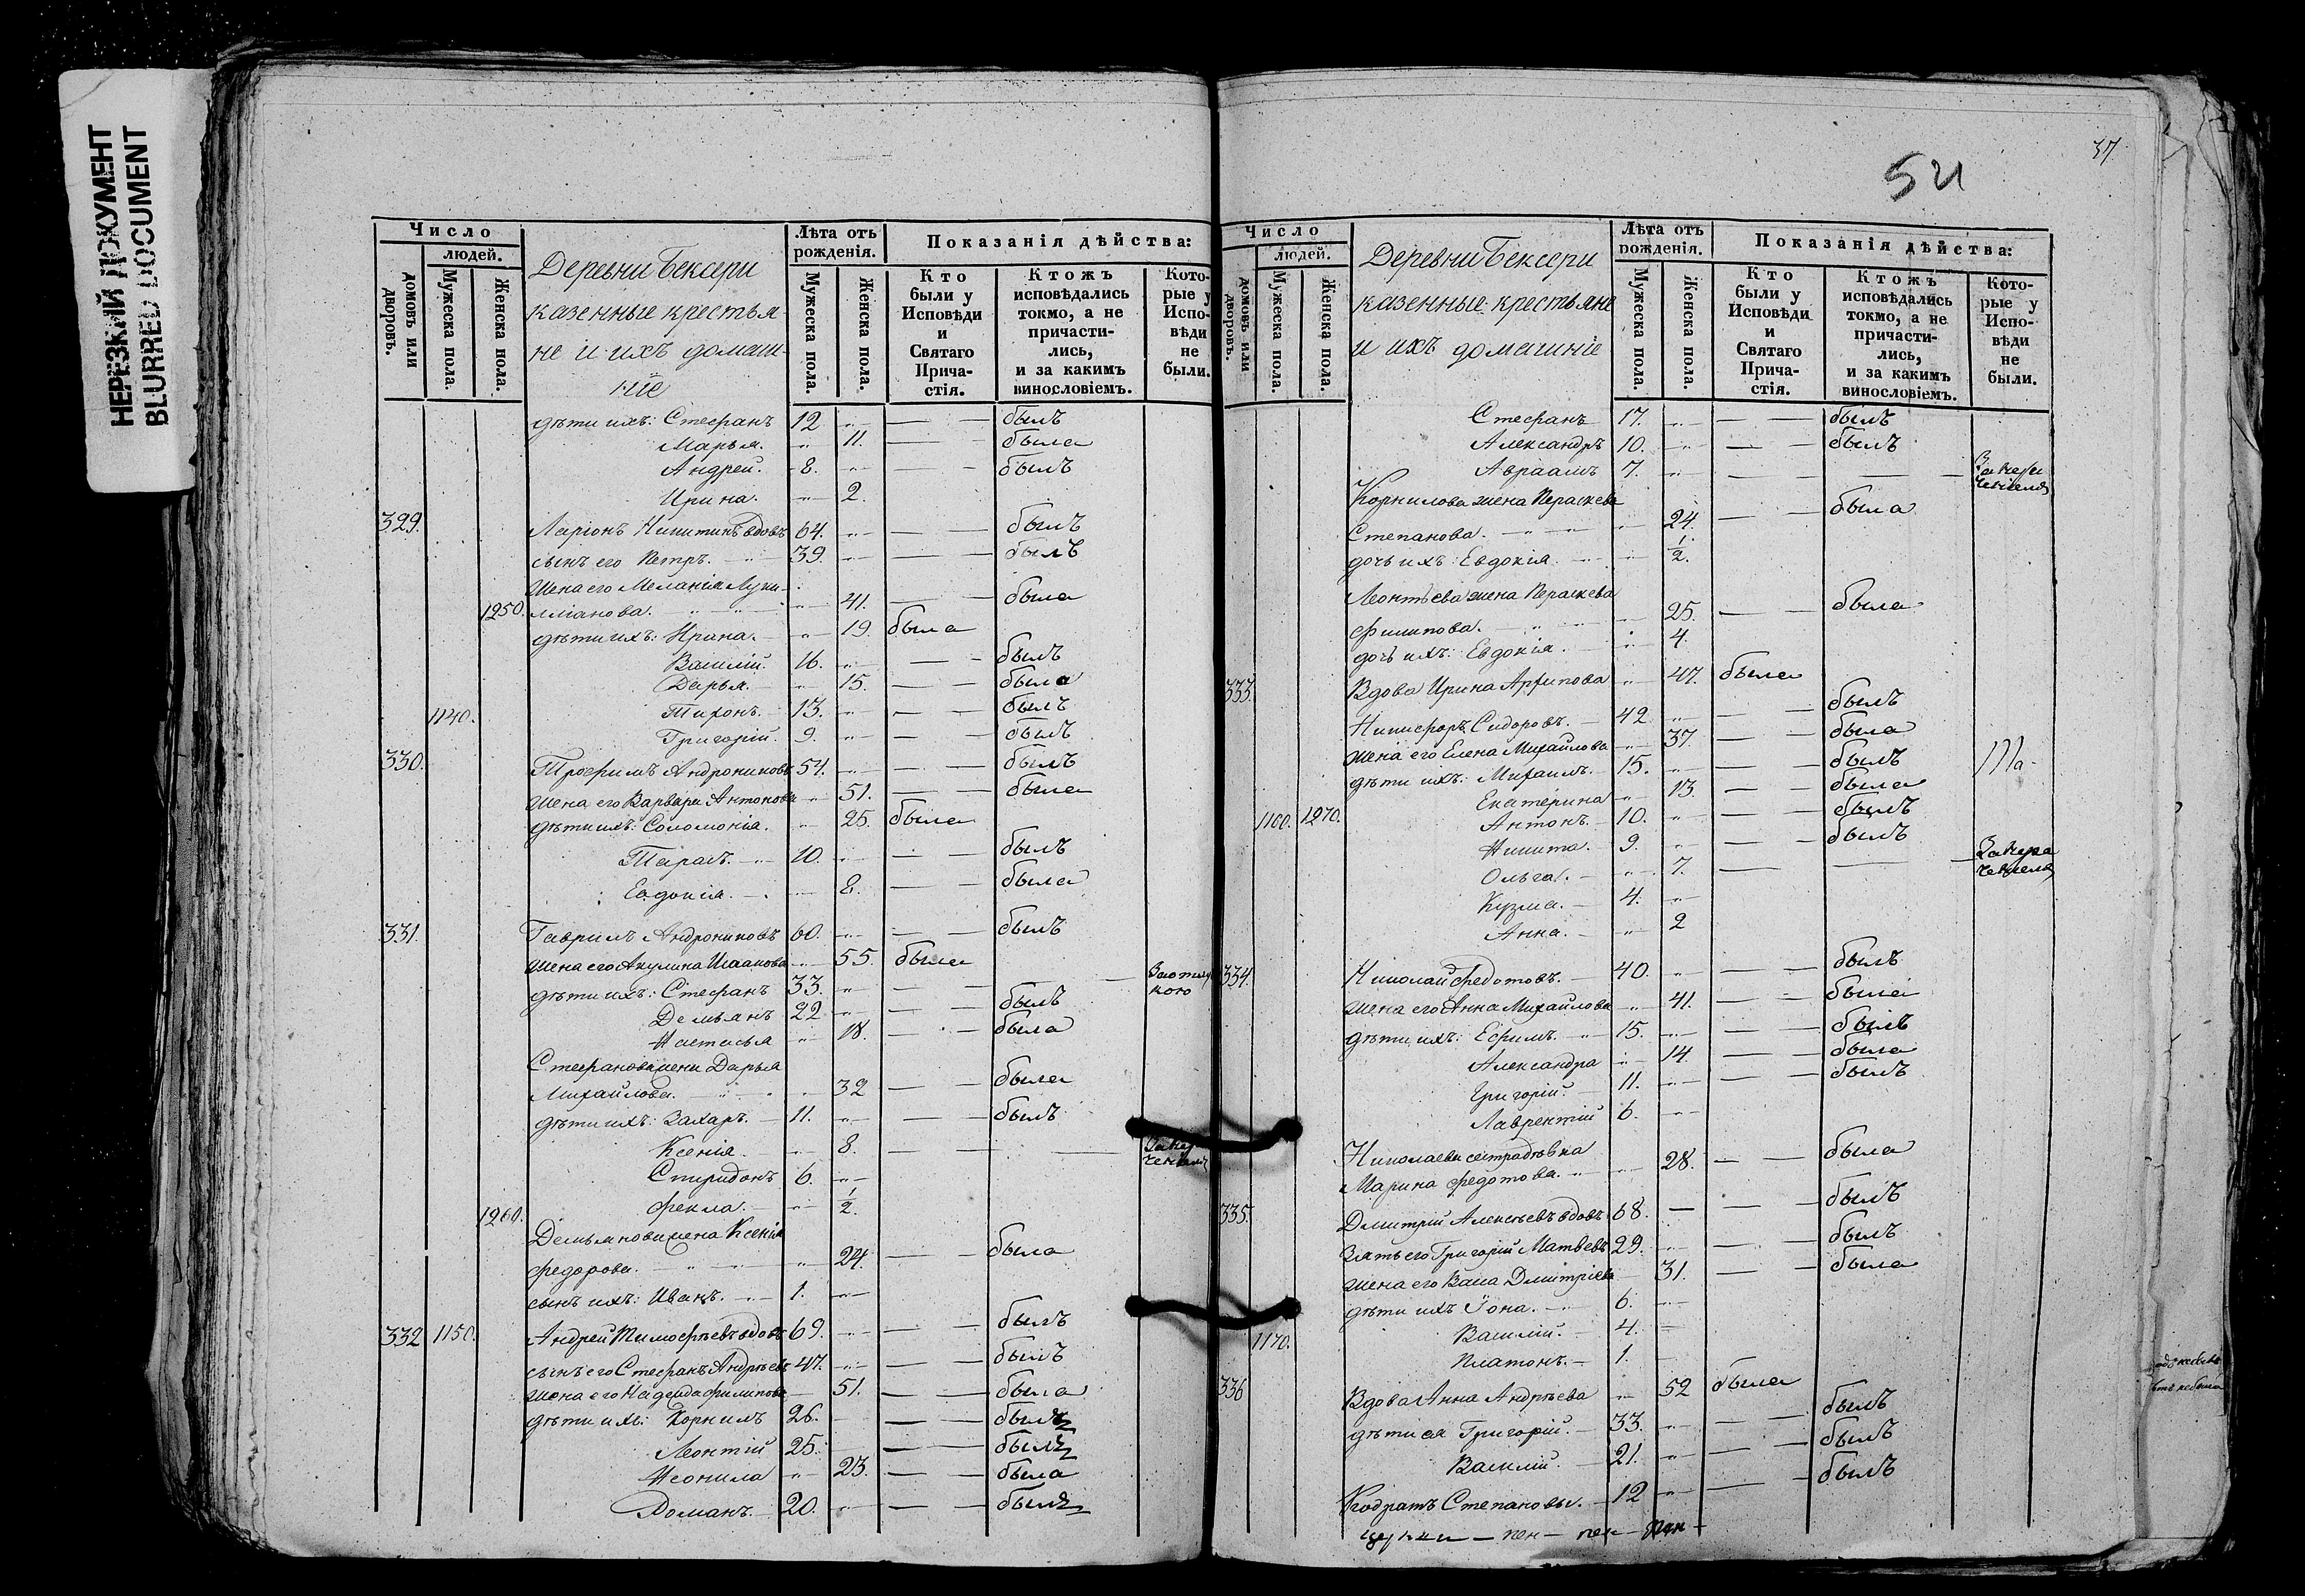 НЕРЕЗКИЙ ДОКУМЕНТ
BLURRED DOCUMENT
Число
людей.
домовъ или дворовъ.
Мужеска пола.
Женска пола.
Деревни Бексери
казенные крестья-
не и ихъ домаш-
ніе
Лѣта отъ рожденія.
Мужеска пола.
Женска пола.
Показанія дѣйства:
Кто были у Исповѣди и Святаго Прича-стія.
Ктожъ исповѣдались токмо, а не причасти-лись, и за какимъ винословіемъ.
Кото-рые у Испо-вѣди не были.
дѣти ихъ: Стефанъ 12 былъ
Марья. 11. была
Андрей. 8. былъ
Ирина. 2.
329. Ларіонъ Никитинъ вдовъ 64. былъ
сынъ его Петръ. 39. былъ
Жена его Меланія Луки-
1250. лліанова. 41. была
дѣти ихъ: Ирина. 19. была
Василій. 16. былъ
Дарья. 15. была
1140. Тихонъ. 13. былъ
Григорій. 9. былъ
330. Трофимъ Андрониковъ 54. былъ
Жена его Варвара Антонова 51. была
дѣти ихъ: Соломонія. 25. была
Тарасъ. 10. былъ
Евдокія. 8. была
331. Гавриилъ Андрониковъ 60. былъ
Жена его Акулина Исаакова 55. была
дѣти ихъ: Стефанъ 33. За отлу
кою
Демьянъ 22 былъ
Настасья 18. была
Стефанова жена Дарья
Михайлова. 32 была
дѣти ихъ: Захаръ. 11. былъ
Ксенія. 8.
Спиридонъ 6.
1260. Фекла. 1/2.
Демьянова жена Ксенія
Федорова. 24. была
сынъ ихъ: Иванъ. 1.
332 1150. Андрей Тимофѣевъ вдовъ 69. былъ
сынъ его Стефанъ Андрѣевъ 47. былъ
Жена его Надежда Филипова 51. была
дѣти ихъ: Корнилъ 26. былъ
Леонтій 25. былъ
Неонила 23. была
Романъ. 20. былъ
37
Число
людей.
домовъ или дворовъ.
Мужеска пола.
Женска пола.
Деревни Бексери
казенные крестьяне
и ихъ домашніе
Лѣта отъ рожденія.
Мужеска пола.
Женска пола.
Показанія дѣйства:
Кто были у Исповѣди и Святаго Прича-стія.
Ктожъ исповѣдались токмо, а не причасти-лись, и за какимъ винословіемъ.
Кото-рые у Испо-вѣди не были.
Стефанъ 17. былъ
Александръ 10. былъ
Авраамъ 7.
Корнилова жена Параскева
Степанова. 24. была
дочь ихъ: Евдокія. 1/2.
Леонтьева жена Параскева
Филипова. 25. была
дочь ихъ: Евдокія. 4.
333. Вдова Ирина Архипова 47. была
Никифоръ Сидоровъ. 42. былъ
Жена его Елена Михайлова 37. была
дѣти ихъ: Михаилъ. 15. былъ
Екатерина 13. была
1160. 1270. Антонъ. 10. былъ
Никита. 9. былъ
Ольга. 7.
Кузма. 4.
Анна. 2
334. Николай Федотовъ. 40. былъ
Жена его Анна Михайлова 41. была
дѣти ихъ: Ефимъ. 15. былъ
Александра 14. была
Григорій. 11. былъ
Лаврентій 6.
Николаева сестра дѣвка
Марина Федотова. 28. была
335. Дмитрій Алексѣевъ вдовъ 68. былъ
Зять его Григорій Матвѣевъ 29. былъ
Жена его Васа Дмитріева 31. была
дѣти ихъ Іона. 6.
1170. Василій. 4.
Платонъ. 1.
336 Вдова Анна Андрѣева 52 была
дѣти ея Григорій. 33. былъ
Василій. 21. былъ
Кодратъ Степановы. 12 былъ